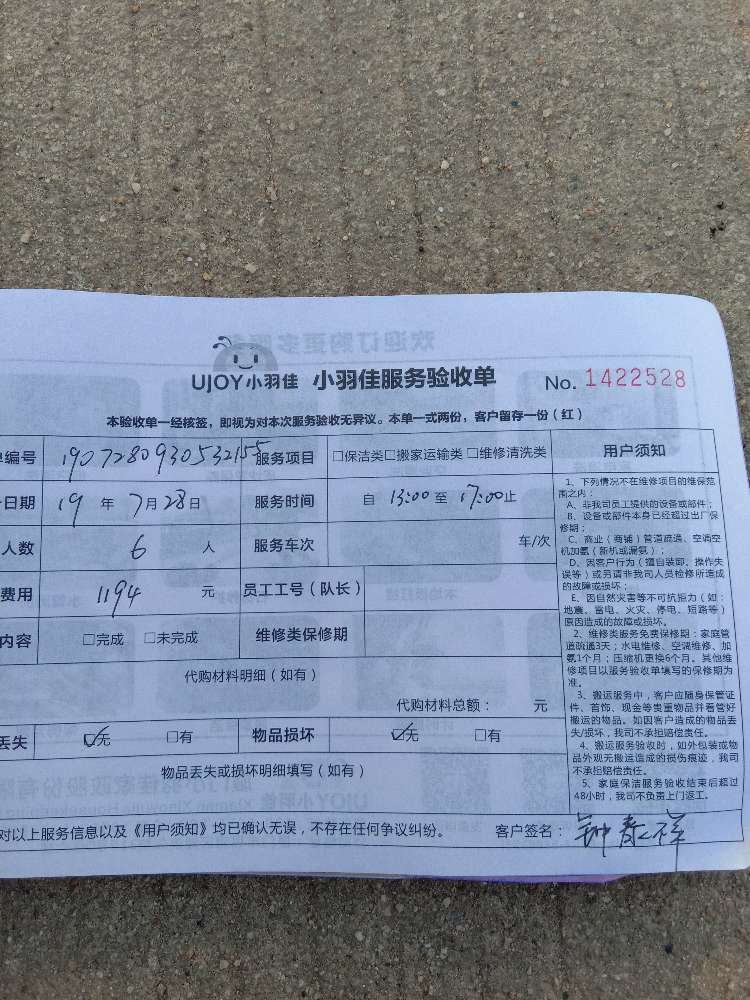 UJOY小羽佳 小羽佳服务验收单 No. 1422528
本验收单一经核签，即视为对本次服务验收无异议。本单一式两份，客户留存一份（红）
单编号 1907280930532155 服务项目 □保洁类□搬家运输类 □维修清洗类
日期 19 年 7 月 28 日 服务时间 自 13:00 至 17:00 止
人数 6 人 服务车次 车/次
费用 1194 元 员工工号（队长）
内容 □完成 □未完成 维修类保修期
代购材料明细（如有）
代购材料总额： 元
丢失 ☑无 □有 物品损坏 ☑无 □有
物品丢失或损坏明细填写（如有）
对以上服务信息以及《用户须知》均已确认无误，不存在任何争议纠纷。 客户签名： 钟泰祥
用户须知
1、下列情况不在维修项目的维保范
围之内：
A、非我司员工提供的设备或部件；
B、设备或部件本身已经超过出厂保
修期；
C、商业（商铺）管道疏通、空调空
机加氨（新机或漏氨）；
D、因客户行为（擅自装卸、操作失
误等）或另请非我司人员检修所造成
的故障或损坏；
E、因自然灾害等不可抗拒力（如：
地震、雷电、火灾、停电、短路等）
原因造成的故障或损坏。
2、维修类服务免费保修期：家庭管
道疏通3天；水电维修、空调维修、加
氨1个月；压缩机更换6个月。其他维
修项目以服务验收单填写的保修期为
准。
3、搬运服务中，客户应随身保管证
件、首饰、现金等贵重物品并看管好
搬运的物品。如因客户造成的物品丢
失/损坏，我司不承担赔偿责任。
4、搬运服务验收时，如外包装或物
品外观无搬运造成的损伤痕迹，我司
不承担赔偿责任。
5、家庭保洁服务验收结束后超过
48小时，我司不负责上门返工。